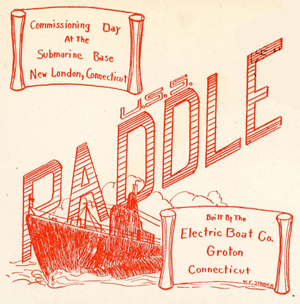 Commissioning Day
At the
Submarine Base
New London, Connecticut
U.S.S.
PADDLE
Built By The
Electric Boat Co.
Groton
Connecticut